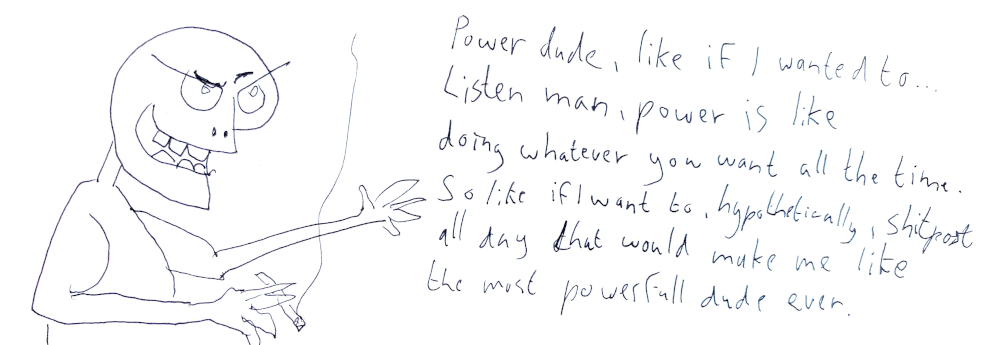 Power dude, like if I wanted to...
Listen man, power is like
doing whatever you want all the time.
So like if I want to, hypothetically, shitpost
all day that would make me like
the most powerfull dude ever.